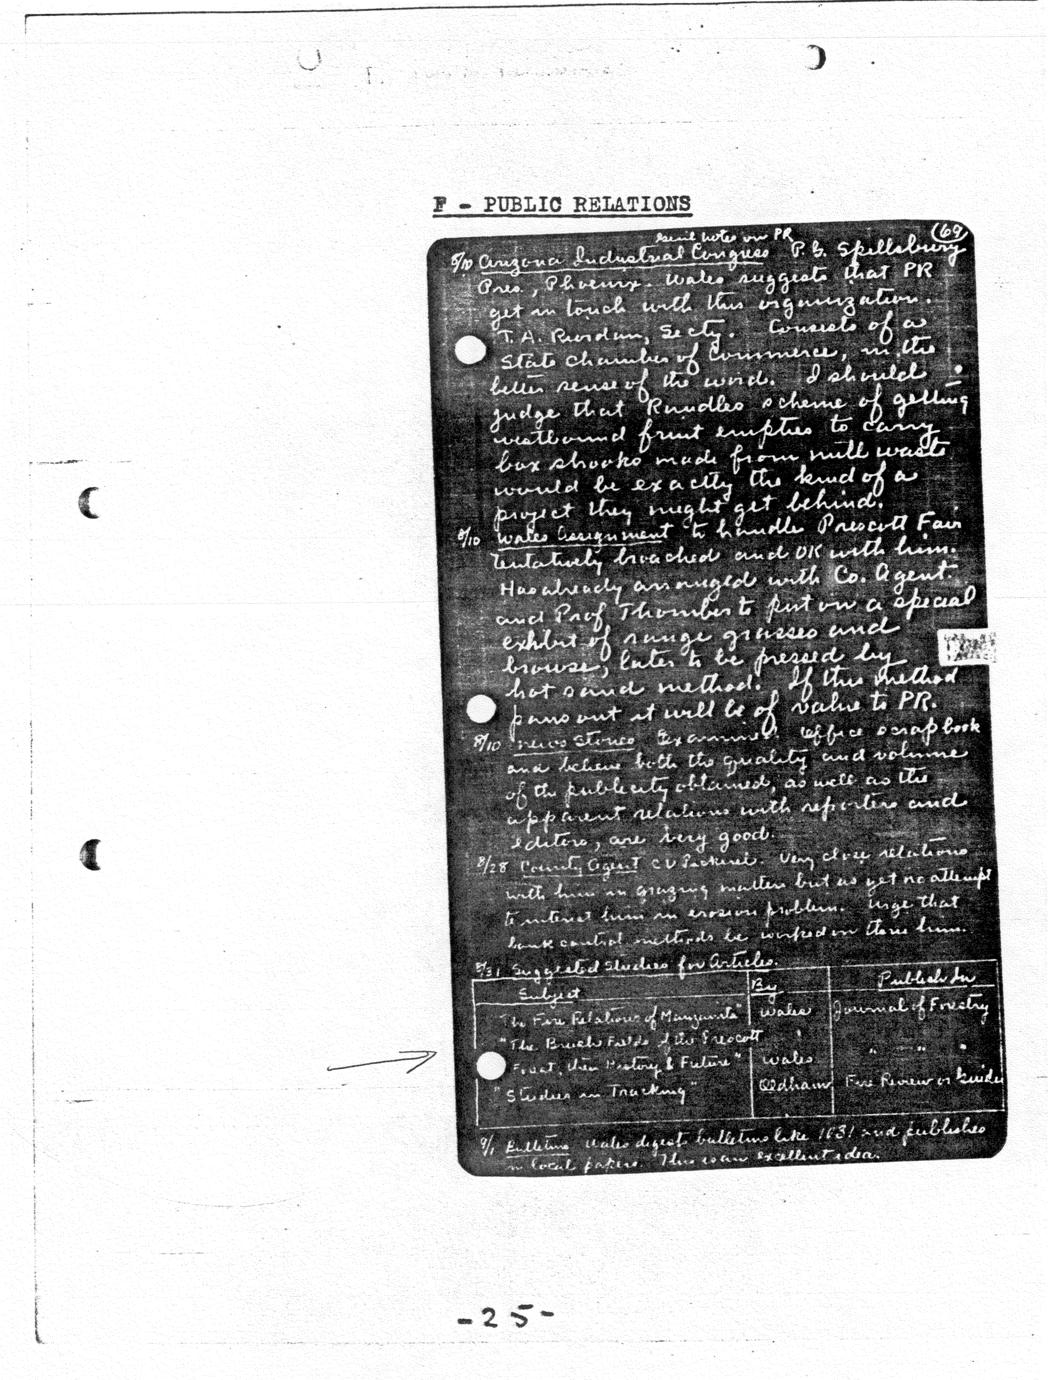 F - PUBLIC RELATIONS
(69)
notes on PR
8/10 Arizona Industrial Congress P. G. Spellsbury
Pres., Phoenix. Wales suggests that PR
get in touch with this organization.
T. A. Riordan, Secty. Consists of a
State chamber of Commerce, in the
better sense of the word. I should
judge that Rundles scheme of getting
westbound fruit empties to carry
box shooks made from mill waste
would be exactly the kind of a
project they might get behind.
8/10 Wales Assignment to handle Prescott Fair
tentatively broached and OK with him.
Has already arranged with Co. Agent
and Prof Thornber to put on a special
exhbit of range grasses and
browse, later to be pressed by
hot sand method. If this method
pans out it will be of value to PR.
8/10 News Stories Examined office scrapbook
and believe both the quality and volume
of the publicity obtained, as well as the
apparent relations with reporters and
editors, are very good.
8/28 County Agent C V Very close relations
with him in grazing matters but as yet no attempt
to interest him in erosion problem. Urge that
bank control methods be worked in thru him.
8/31 Suggested Studies for Articles.
Subject By Publish In
"The Fire Relations of Manzanita" Wales Journal of Forestry
"The Brush Fields of the Prescott
Forest, their History & Future" Wales " " "
"Studies in Tracking" Oldham Fire Review or Guide
9/1 Bulletins Wales digests bulletins like 1031 and publishes
in local papers. This is an excellent idea.
-25-